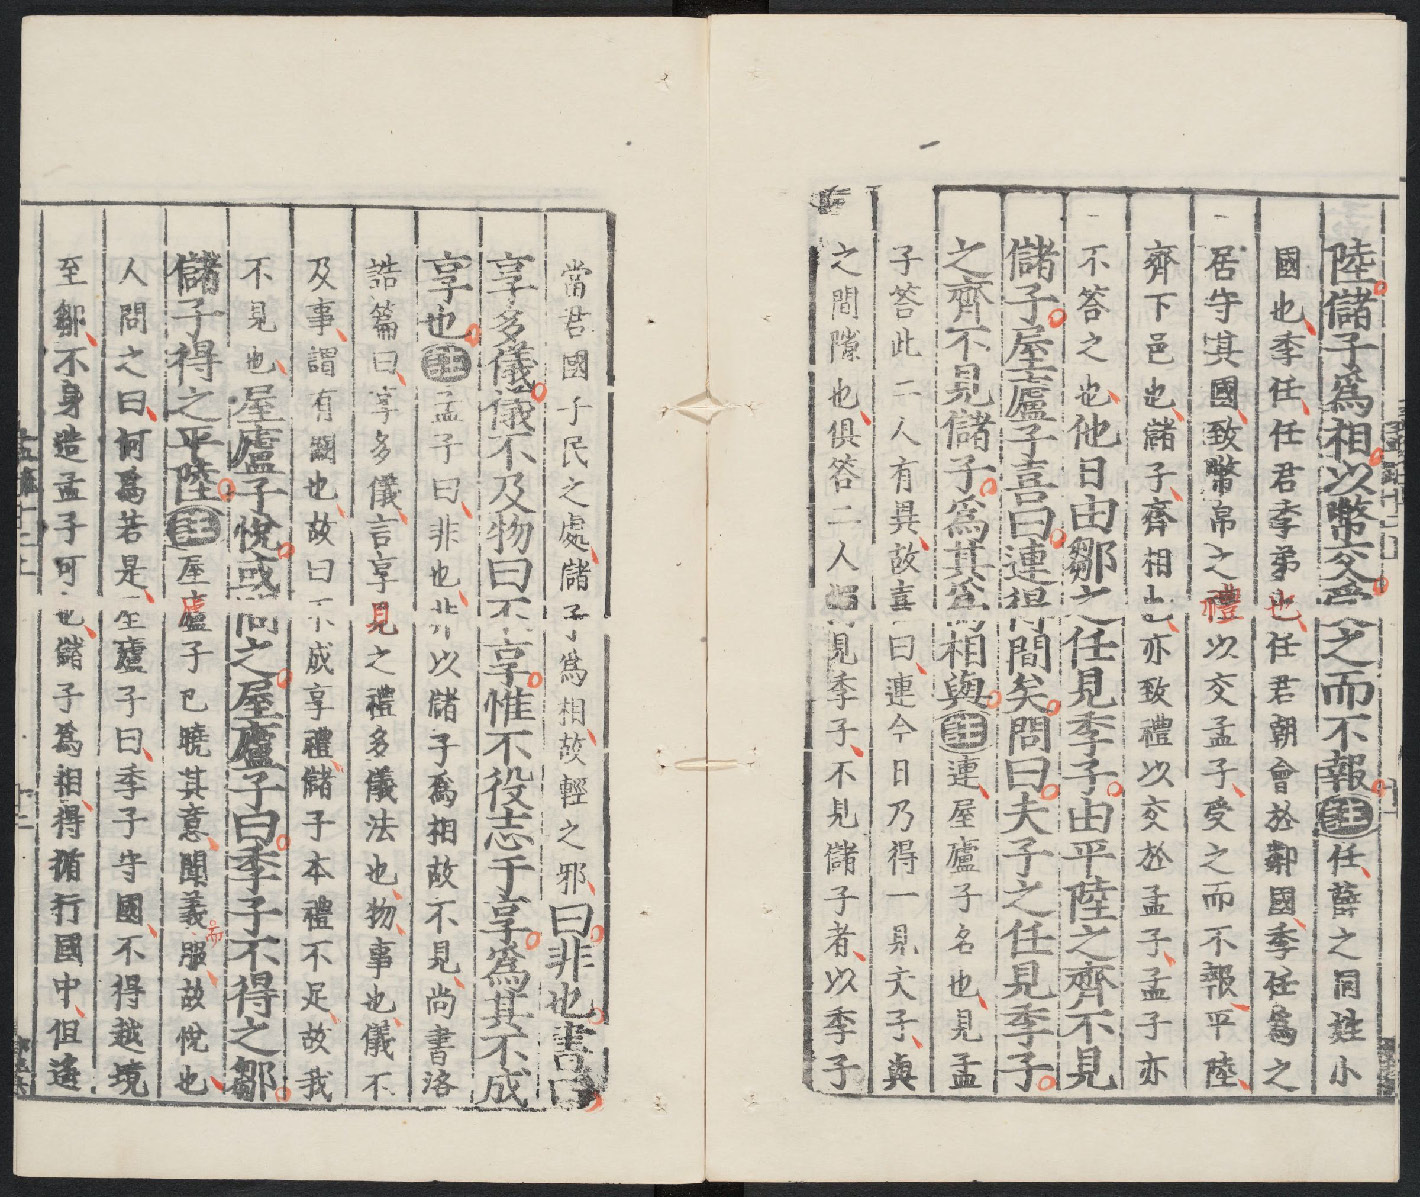 陸儲子爲相以幣交受之而不報注任薛之同姓小
國也季任任君季弟也任君朝會於鄰國季任爲之
居守其國致幣帛之禮以交孟子受之而不報平陸
齊下邑也儲子齊相也亦致禮以交於孟子孟子亦
不答之也他日由鄒之任見季子由平陸之齊不見
儲子屋廬子喜曰連得間矣問曰夫子之任見季子
之齊不見儲子爲其爲相與注連屋廬子名也見孟
子答此二人有異故喜曰連今日乃得一見夫子與
之間隙也俱答二人獨見季子不見儲子者以季子
當君國子民之處儲子爲相故輕之邪曰非也書曰
享多儀儀不及物曰不享惟不役志于享爲其不成
享也注孟子曰非也非以儲子爲相故不見尚書洛
誥篇曰享多儀言享見之禮多儀法也物事也儀不
及事謂有闕也故曰不成享禮儲子本禮不足故我
不見也屋廬子悅或問之屋廬子曰季子不得之鄒
儲子得之平陸注屋廬子已曉其意聞義而服故悅也
人問之曰何爲若是屋廬子曰季子守國不得越境
至鄒不身造孟子可也儲子爲相得循行國中但遙